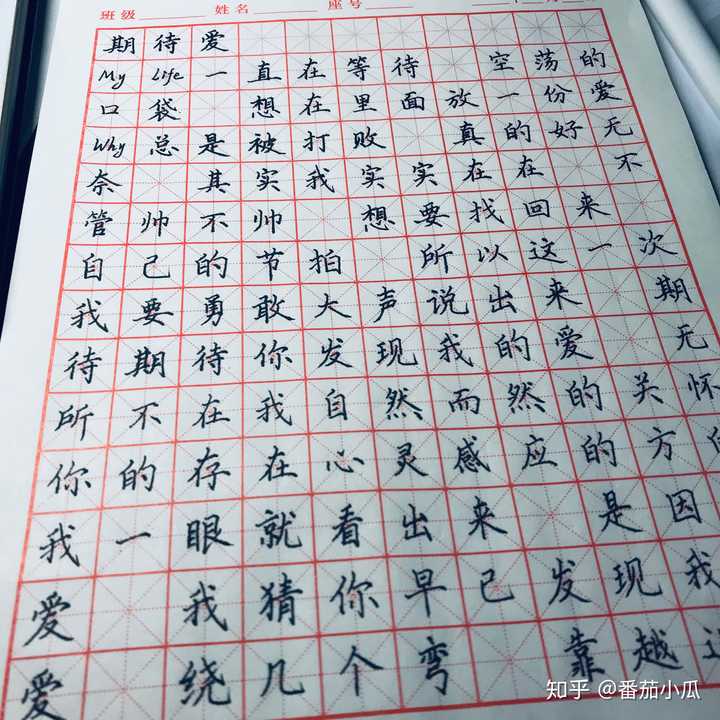 班级 姓名 座号
期待爱
My Life 一直在等待 空荡的
口袋 想在里面放一份爱
Why 总是被打败 真的好无
奈 其实我实实在在 不
管帅不帅 想要找回来
自己的节拍 所以这一次
我要勇敢大声说出来 期
待期待你发现我的爱 无
所不在我自然而然的关怀
你的存在心灵感应的方
我一眼就看出来 是因
爱 我猜你早已发现我
爱 绕几个弯 靠越
知乎 @番茄小瓜